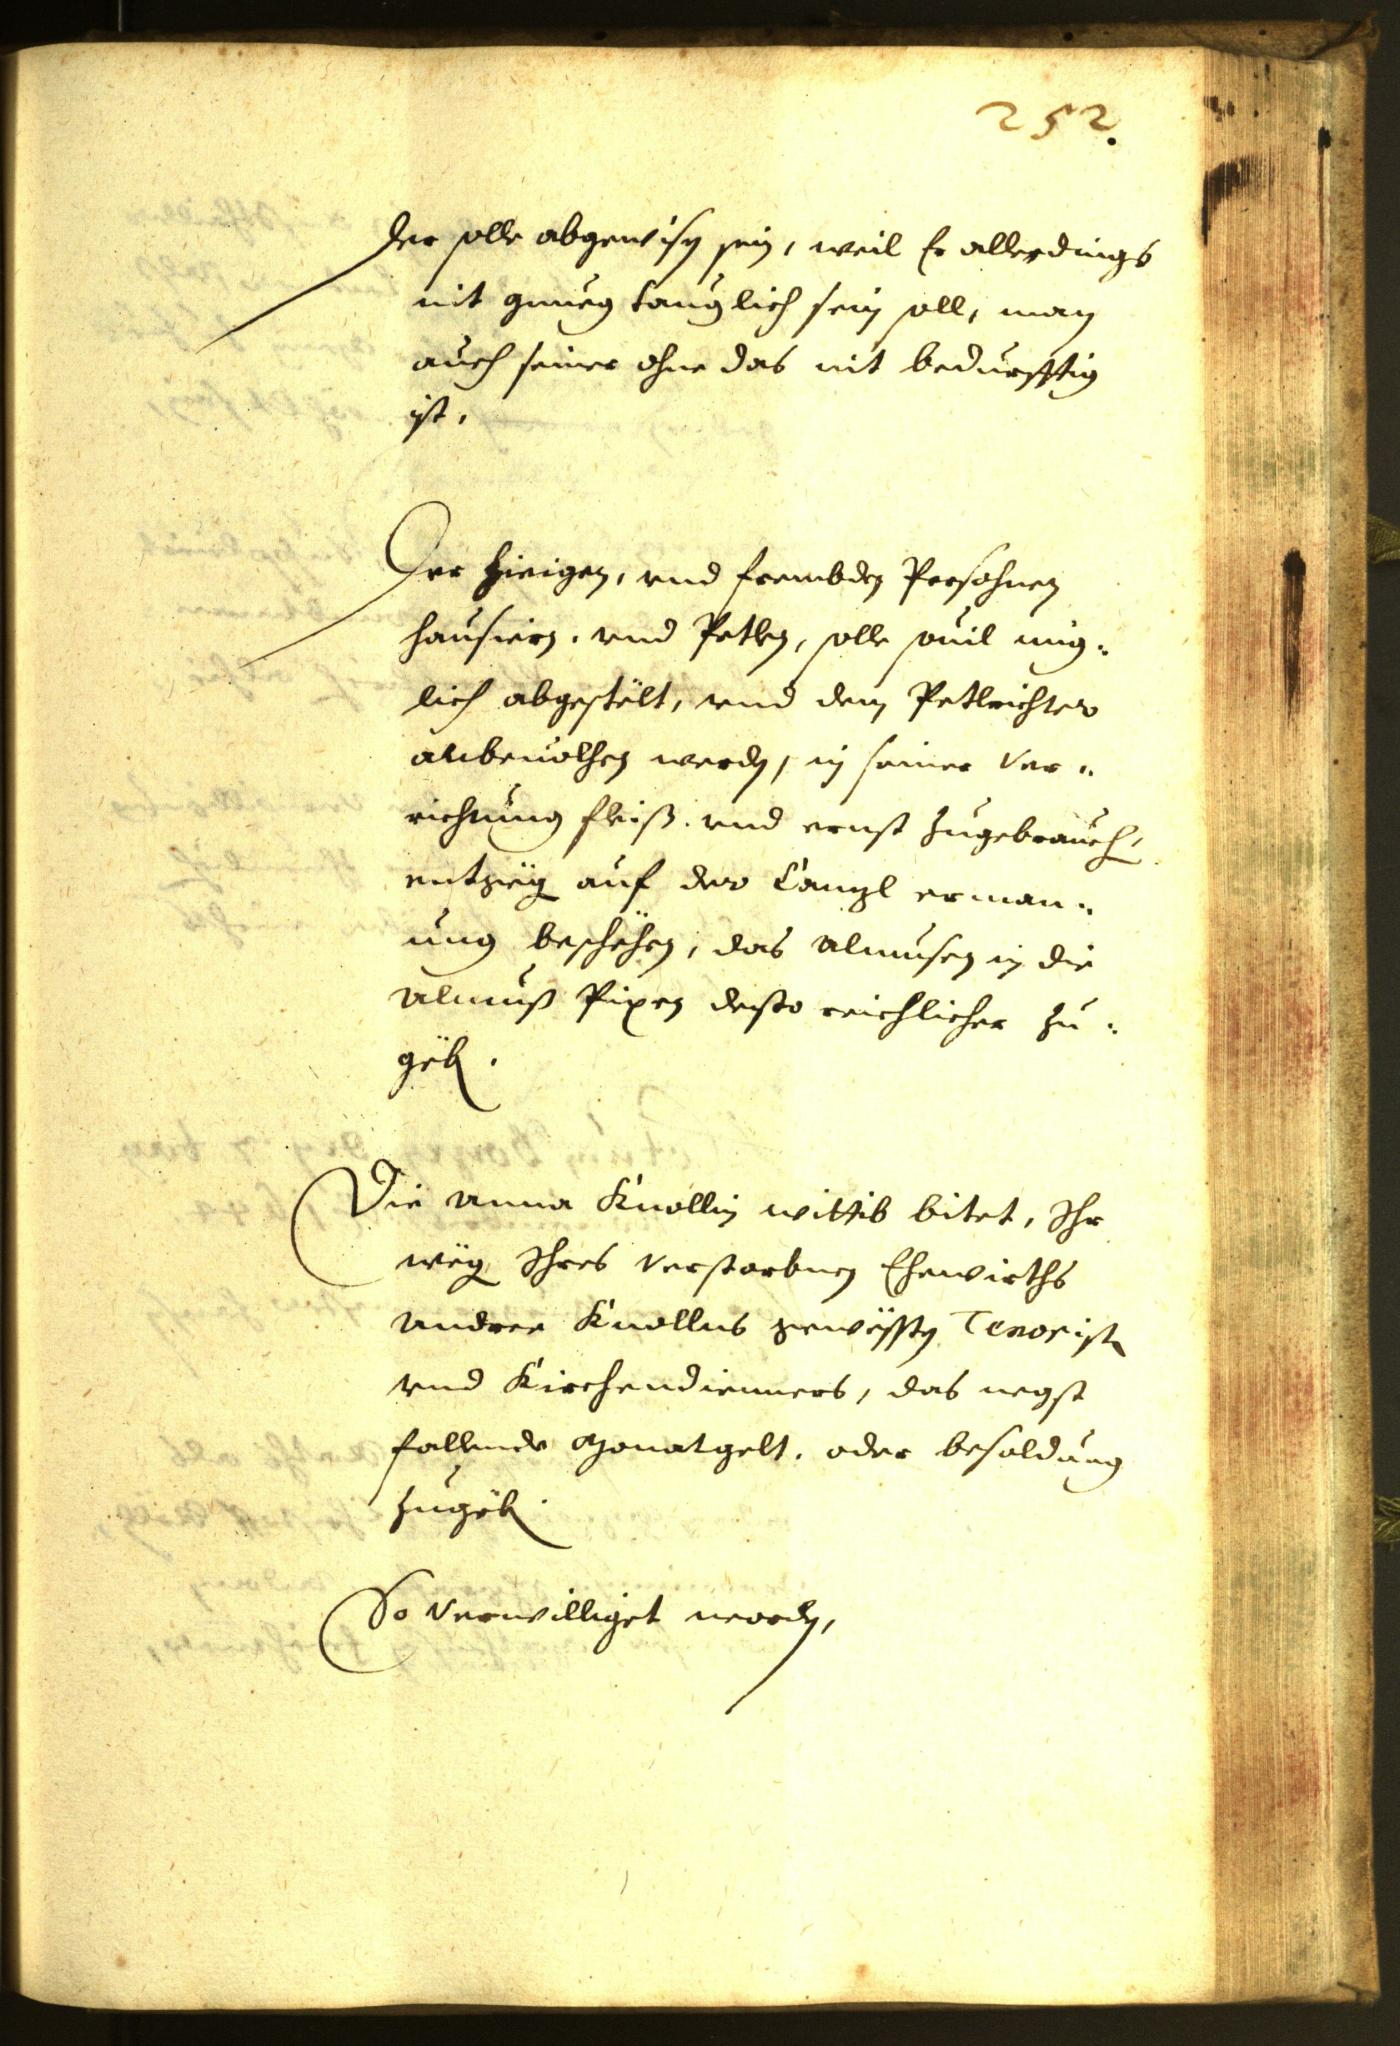 252.
der solle abgewisen sein, weil Er allerdings
nit gnueg tauglich sein soll, man
auch seiner ohne das nit bedurfftig
ist.
Der hieigen, vnd frembden Persohnen
hausiern, vnd Petlen, solle souil müg„
lich abgestölt, vnd dem Petlrichter
anbeuolhen werden, in seiner Ver„
richtung fleiß vnd ernst zugebrauchen,
entzwischen auf der Canzl erman„
ung beschehen, das Almusen in die
Almueß Pixen desto reichlicher zu„
geben.
Die Anna Knollin wittib bitet, Ihr
wegen Ihres verstorbnen Ehewirths
Andree Knollns gewessten Tenoristen
vnd Kirchendienners, das negst
fallende Monatgelt, oder besoldung
zugeben.
So verwilliget worden,